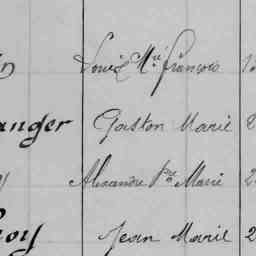 Louis Mie François
anger Gaston Marie 2
Alexandre Pre Marie 2
Roy Jean Marie 2